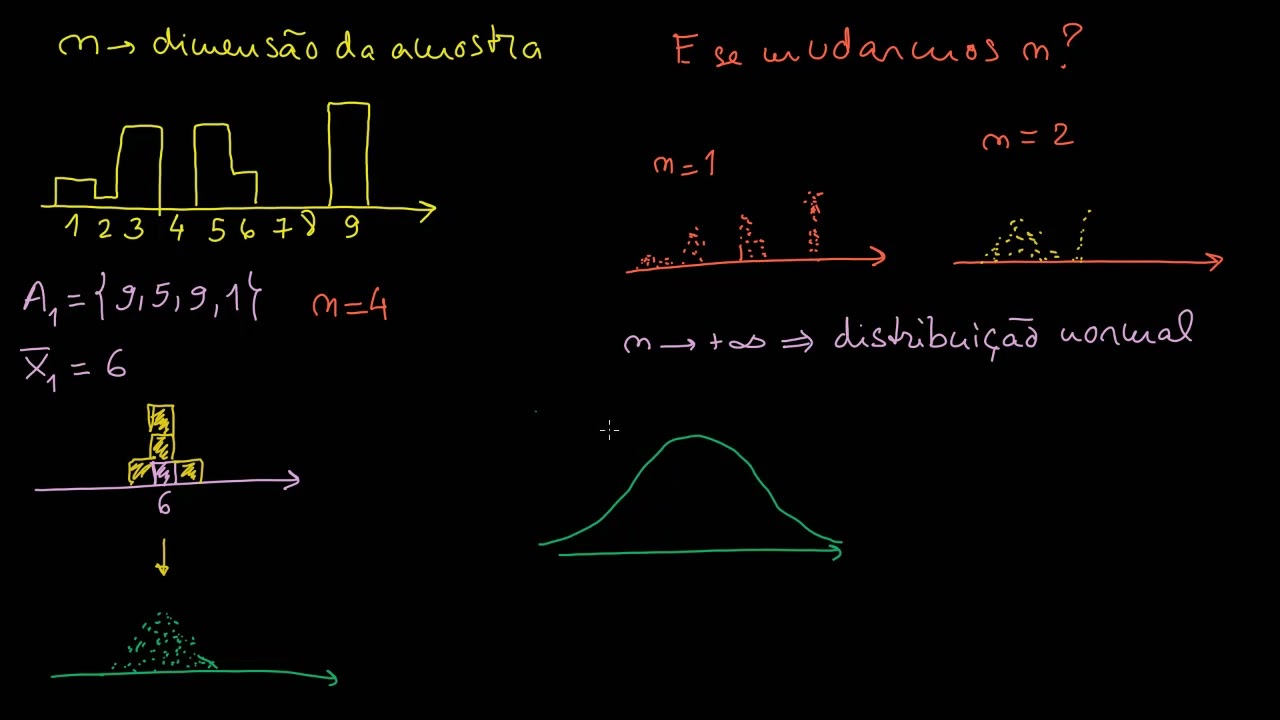 n → dimensão da amostra
1 2 3 4 5 6 7 8 9
A₁ = {9, 5, 9, 1} n = 4
X̄₁ = 6
6
E se mudarmos n?
n = 1
n = 2
n → +∞ ⇒ distribuição normal